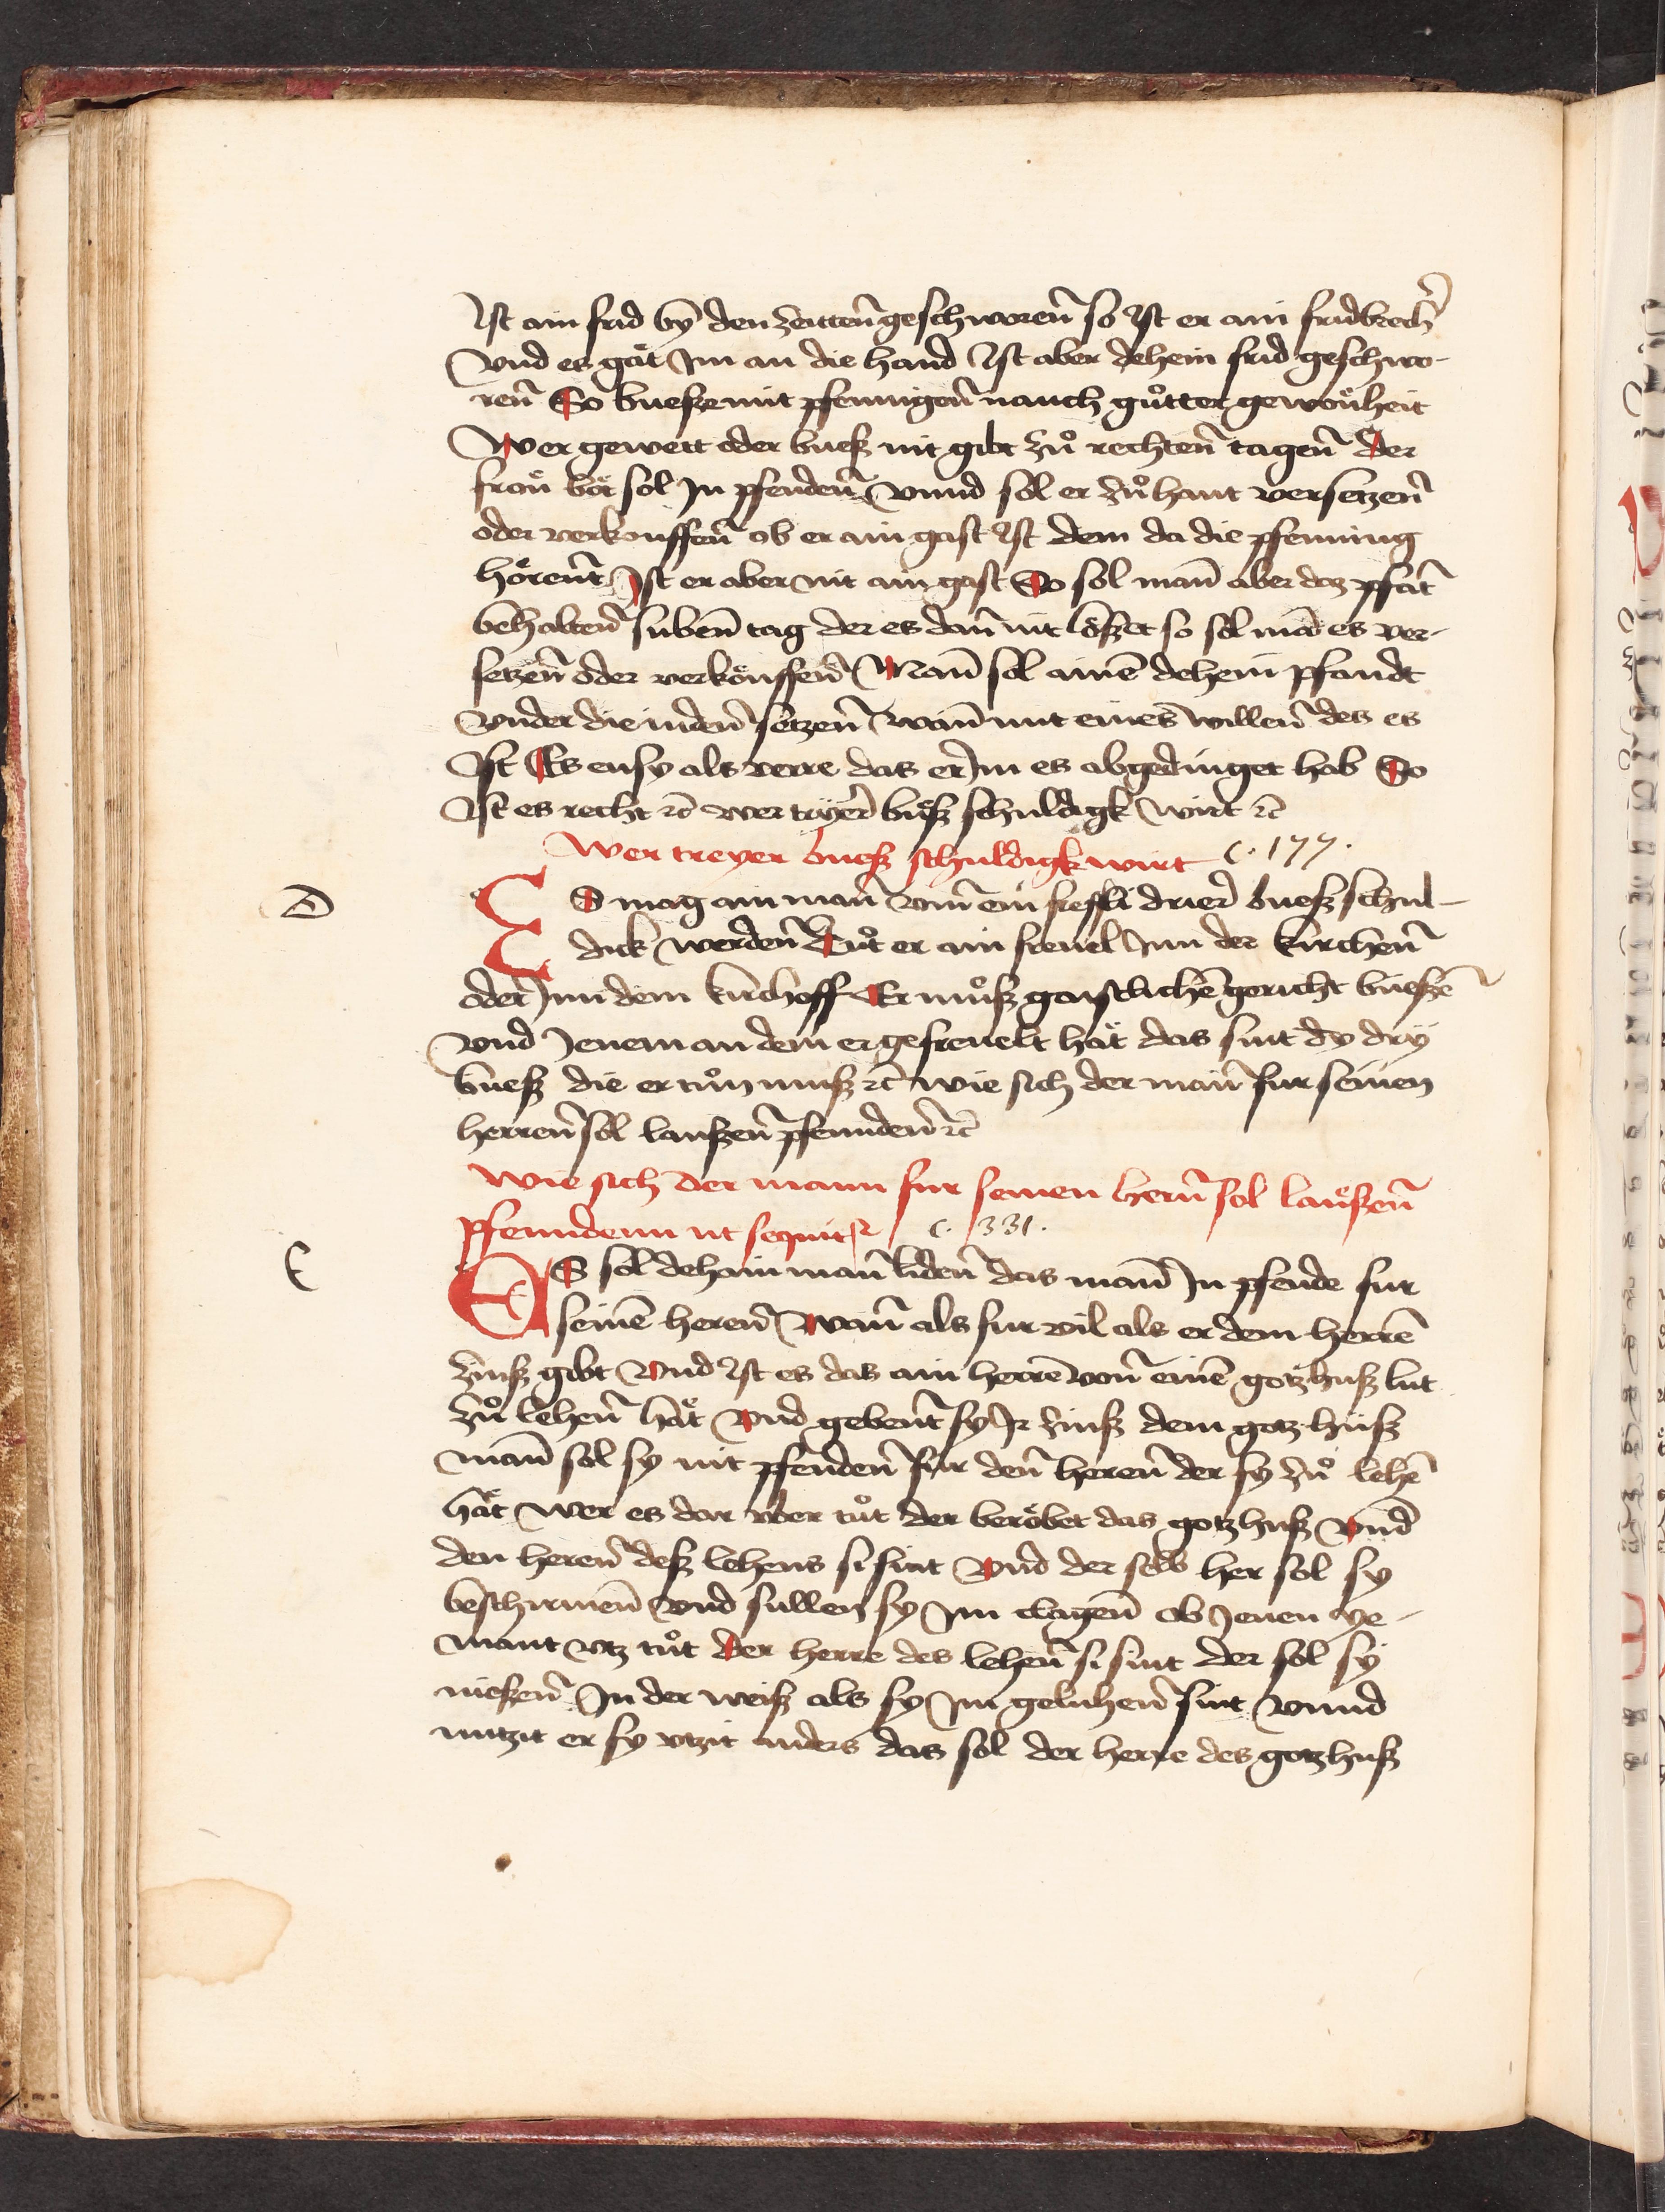 Ist ain frid by den zeitten geschworen so Ist er ain fridbrech
Vnd es gät Im an die hand Ist aber dehein frid geschwo-
ren So buesze mit pfenningen nauch guͦtter gewonheit
Wer gewett oder buesz nit gibt zuͦ rechten tagen der
fron bot sol In pfenden Vnnd sol er zuͦ hant versetzen
oder verkouffen ob er ain gast Ist dem da die pfenning
hörent Ist er aber nit ain gast So sol man aber daz pfat
behalten suben tag der es dan nit löszet so sol mā es ver-
setzen oder verköuffen Man sol ainē dehein pfandt
Vnder die iuden setzen wan mit eines willen des es
Ist Es ensy als verre das er Im es abgedinget hab So
Ist es recht ꝛc wer tryer buͤsz schuldigk wirt ꝛc
Wer treyer buesz schuldigk wirt c. 177.
D
ES mag ain man vmm ein freffli drier buesz schul-
dick werden Tuͦt er ain freuel Inn der kirchen
oder Inn dem kirchoff Er muͦsz gaistlichē gericht bueszē
Vnd Jenem an dem er gefreuelt hät das sint dy dry
buesz die er tuͦn musz ꝛc wie sich der man fur seinen
herren sol lauszen pfennden ꝛc
Wie sich der mann fur seinen hern sol lauszen
pfenndenn ut sequitꝛ c. 331.
E
ES sol dehain man liden das man In pfende fur
seinē heren wan als fur vil als er dem herrē
zinsz gibt Vnd Ist es das ain herre von einē gotzhusz lut
zuͦ lehen hät Vnd gebent sy Ir zinsz dem gotzhusz
man sol sy nit pfenden fur den heren der sy zuͦ lehē
hät wer es dar vber tuͦt der beröbet das gotzhusz Vnd
den heren desz lehens si sint Vnd der selb her sol sy
beschirmen Vnd sullen sy Im clagen ob Jenen ye-
mant vtz tuͦt Der herre des lehen si sint der sol sy
nieszen In der weisz als sy Im geluhen sint Vnnd
nutzit er sy vtzit anders das sol der herre des gotzhusz